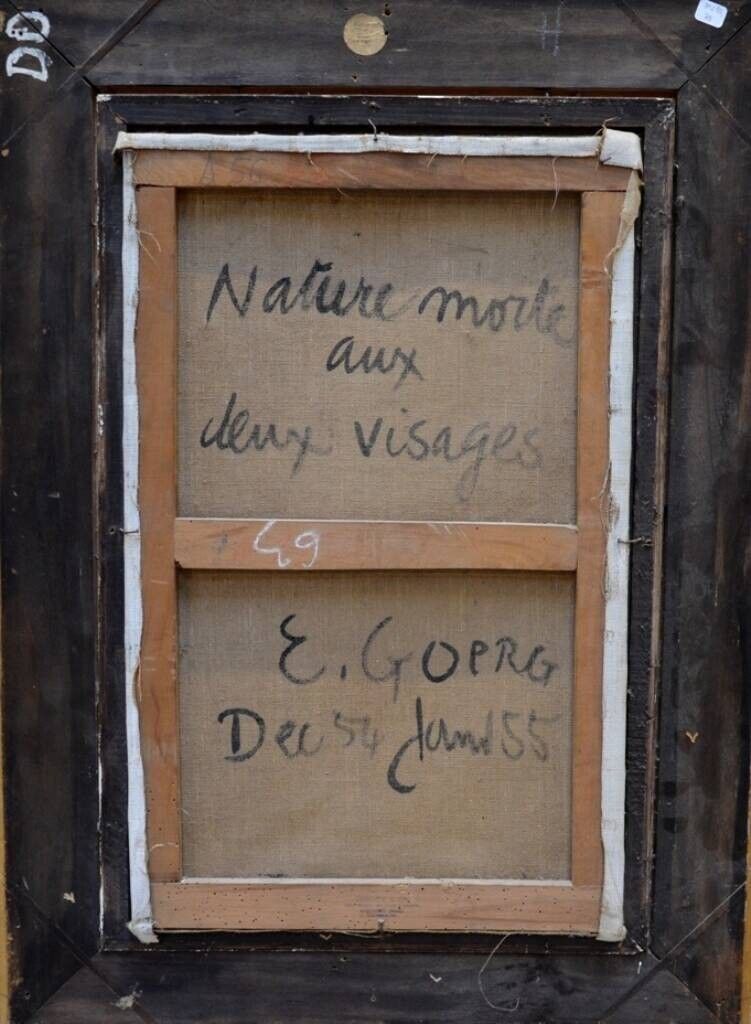 DD
Nature morte
aux
deux visages
49
E. GOERG
Dec 54 Janv 55